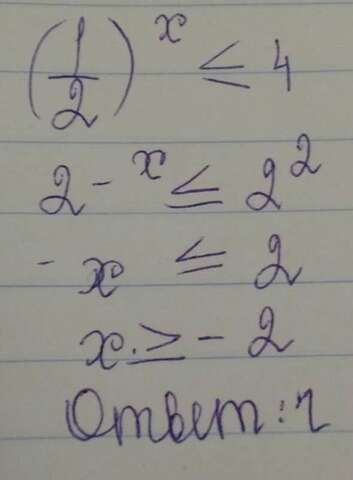 (1/2)^x ≤ 4
2^-x ≤ 2^2
-x ≤ 2
x ≥ -2
Ответ: 1